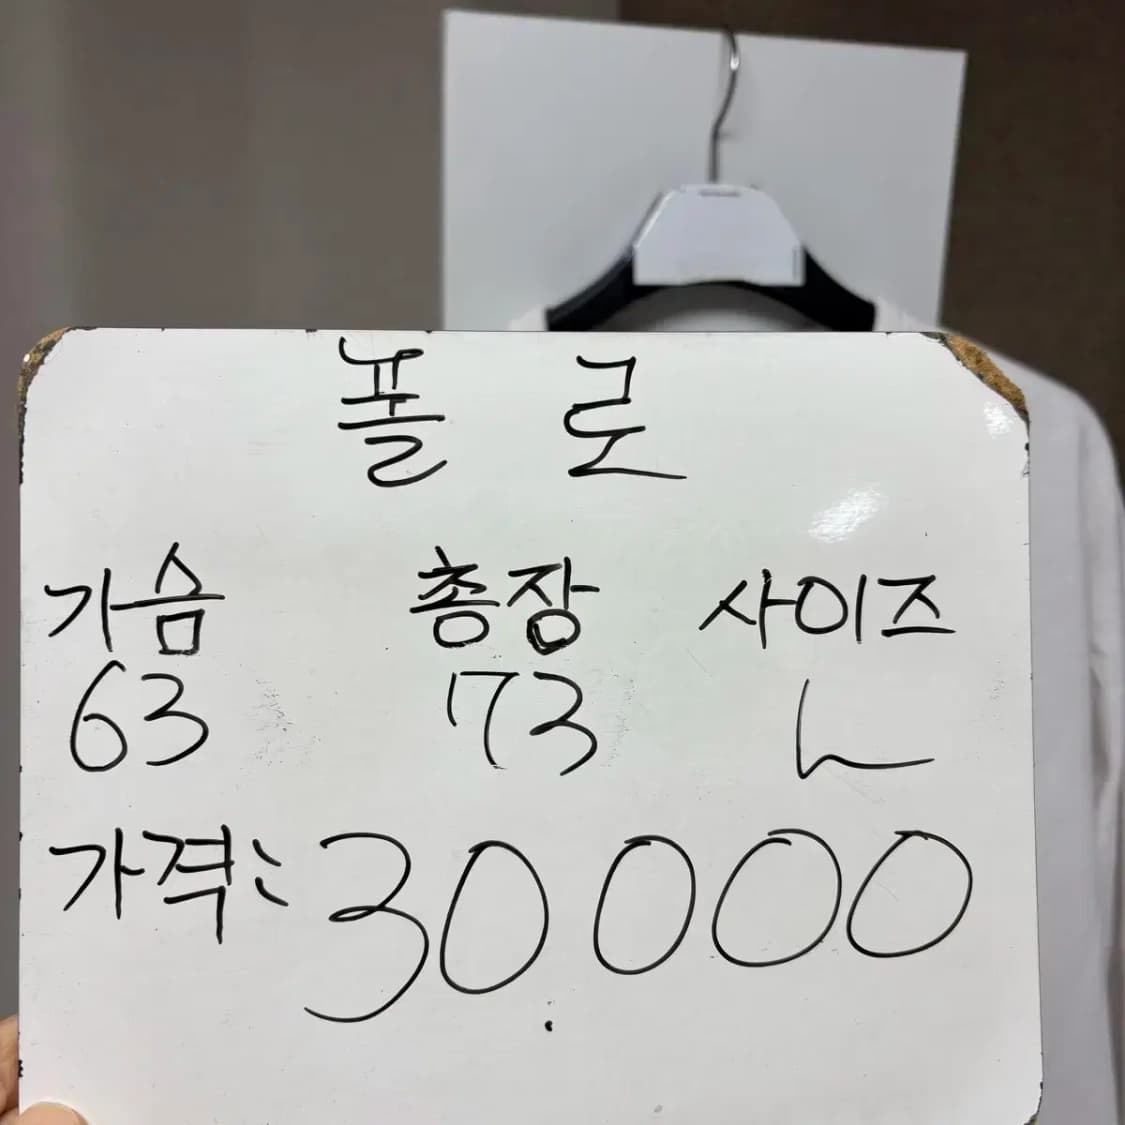 폴 로
가슴 총장 사이즈
63 73 L
가격: 30.000